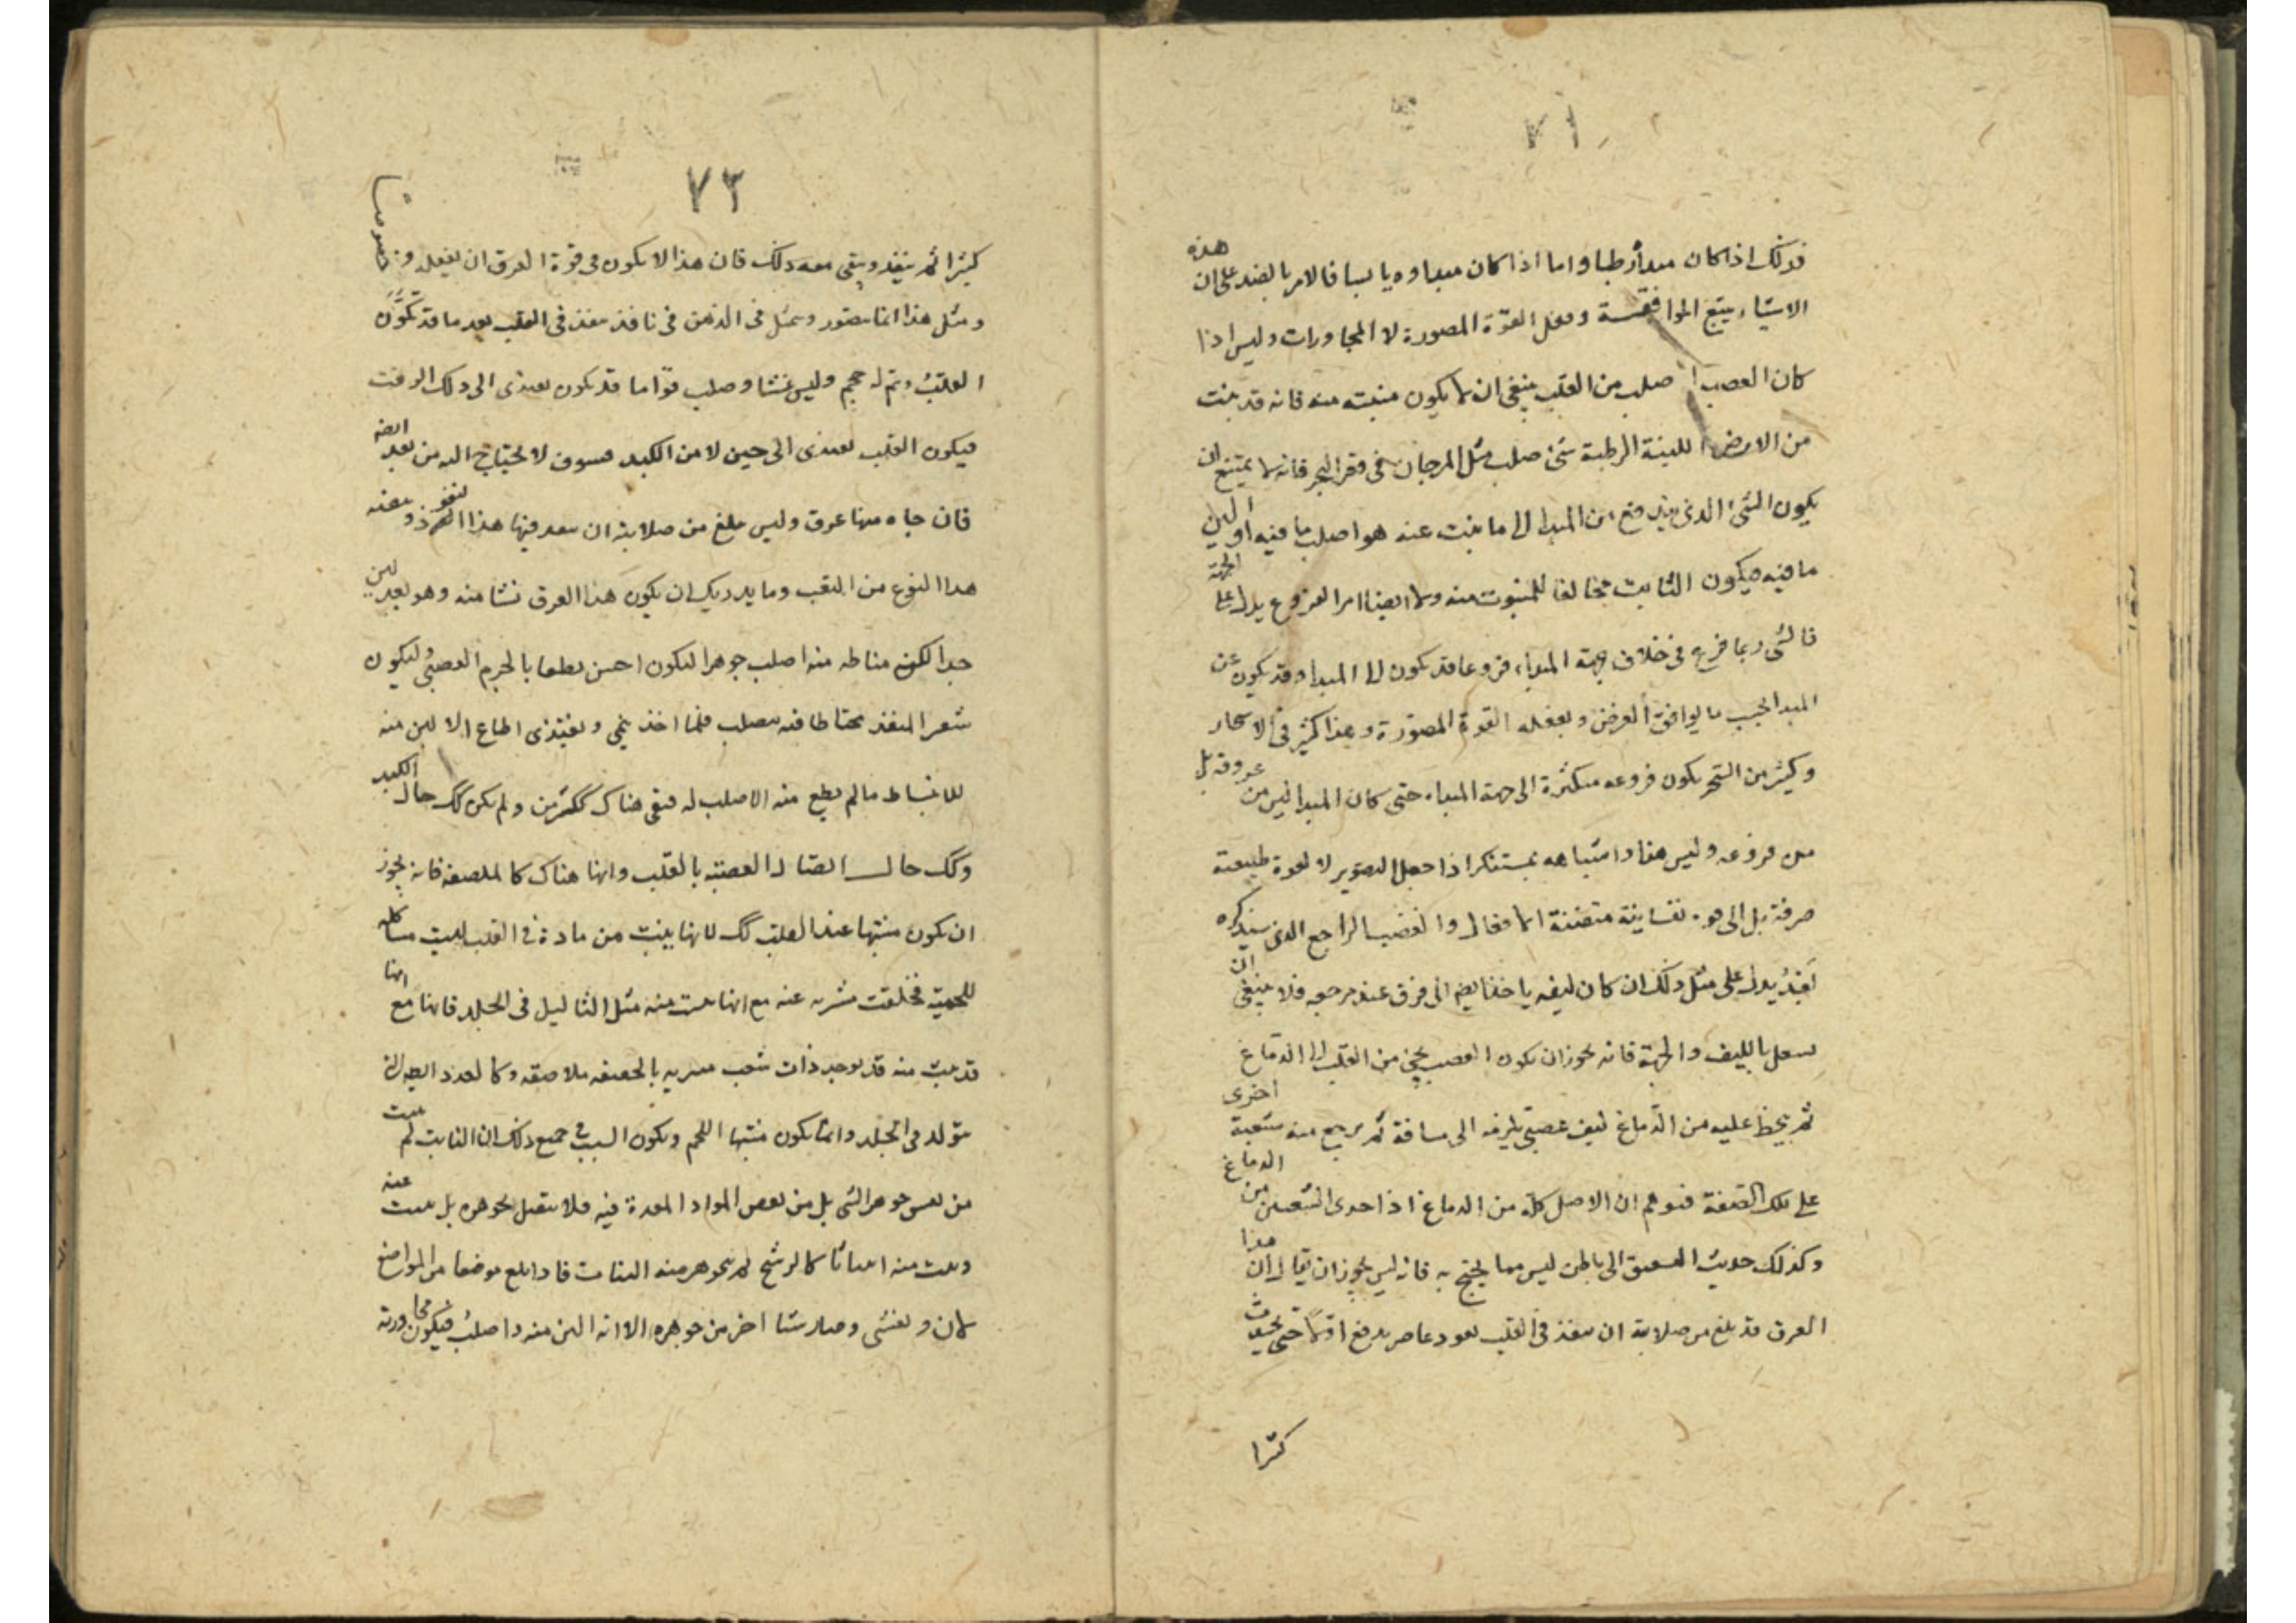 ٧١
فذلك اذا كان مبدأ رطبا واما اذا كان مبداوه يابسا فالامر بالضد على ان هذه
الاشياء يتبع الموافقة وفعل القوة المصورة لا المجاورات وليس اذا
كان العصب اصلب من القلب ينبغى ان لا يكون منبته منه فانه قد ينبت
من الارض اللينة الرطبة شئ صلب مثل المرجان فى قعر البحر فانه لا يمتنع ان
يكون الشئ الذى يندفع من المبدا الى ما ينبت عنه هو اصلب ما فيه او الين
ما فيه فيكون النابت مخالفا للمنبوت منه ولا ايضا امر الفروع يدل على الجهة
فالشى ربما فرع فى خلاف جهة المبداء فروعا قد يكون الى المبدا وقد يكون عن
المبدا بحسب ما يوافق الغرض ويفعله القوة المصورة وهذا كثير فى الاشجار
وكثير من الشجر يكون فروعه متكثرة الى جهة المبداء حتى كان المبدا ليس من عروقه بل
من فروعه وليس هذا واشباهه بمستنكر اذا جعل التصوير لا لقوة طبيعته
صرفة بل الى نفسانية متفننة الافعال والعصب الراجع الذى سنذكره
يدل على مثل ذلك ان كان ليفه ياخذ الى فوق عند مرجعه فلا ينبغى ان
بالليف والجهة فانه يجوز ان يكون العصب يجئ من القلب الى الدماغ
ثم ينحط عليه من الدماغ ليف عصبى يلزمه الى مسافة ثم يرجع منه شعبة اخرى
على تلك الصفة فتوهم ان الاصل كله من الدماغ اذ احدى الشعبتين من الدماغ
وكذلك حديث العمق الى باطن ليس مما يحتج به فانه ليس يجوز ان يقال ان هذا
العرق قد بلغ من صلابته ان ينفذ فى القلب نفوذ عاصر يدفع اولا حتى يحدث
كثرا
٧٣
كثرا ثم ينفذ ويبقى معه ذلك فان هذا لا يكون فى قوة العرق ان يفعله وخصوصا
ومثل هذا انما يتصور ويتمثل فى الذهن فى نافذ ينفذ فى القلب بعد ما قد تكون
القلب وتم له حجم وليس غشا وصلب قواما قد يكون يغتذى الى ذلك الوقت
فيكون القلب يغتذى الى حين لا من الكبد فسوف لا يحتاج اليه من بعد ايضه
فان جاه منها عرق وليس يبلغ من صلابته ان ينفذ فيها هذا النفوذ ويثقبه
هذا النوع من الثقب وما يدريك ان يكون هذا العرق نشا منه وهو بعد لين
جدا لكن مناطه منه اصلب جوهرا ليكون احسن بالجرم العصبى وليكون
شفر المنفذ محتاطا فيه بصلب فلما اخذ ينمى ويغتذى اطاع الالين منه
للانبساط ما لم يطع منه الاصلب له فبقى هناك ولم يكن كك حال الكبد
وكك حال اتصال العصبة بالقلب وانها هناك كالملصقة فانه يجوز
ان يكون منبتها عند القلب كك لانها ينبت من مادة فى القلب ليست مشاكله
للحميته فخلقت متبريه عنه مع انها نبتت منه مثل الثآليل فى الجلد فانها مع انها
قد نبتت منه قد يوجد ذات شعب ملاصقه وكالغدد التى
يتولد فى الجلد وانما يكون منبتها اللحم ويكون السبب فى جميع ذلك ان النابت لم ينبت
من نفس جوهر الشى بل من بعض المواد المعدة فيه فلا يتصل بجوهره بل ينبت عنه
وينبت منه انباتا كالرشح ثم يتجوهر منه النبات فاذا بلغ موضعا من المواضع
لان وتفشى وصار شيا اخر من جوهره الا انه الين منه واصلب فيكون مجاورته